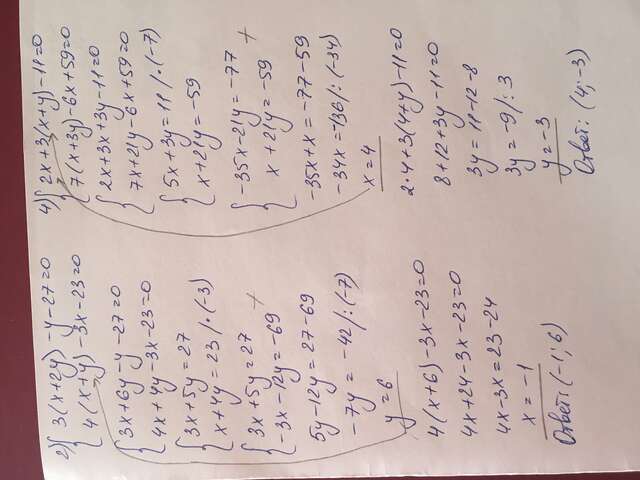 2) { 3(x+2y) - y - 27=0
4(x+y) - 3x - 23=0
{ 3x+6y - y - 27=0
4x+4y - 3x - 23=0
{ 3x+5y = 27
x+4y = 23 /·(-3)
{ 3x+5y = 27 +
-3x-12y = -69
5y - 12y = 27-69
-7y = -42/:(-7)
y = 6
4(x+6) - 3x - 23=0
4x+24 - 3x - 23=0
4x - 3x = 23 - 24
x = -1
Ответ: (-1; 6)
4) { 2x+3(x+y) - 11=0
7(x+3y) - 6x+59=0
{ 2x+3x+3y - 11=0
7x+21y - 6x+59=0
{ 5x+3y = 11 /·(-7)
x+21y = -59
{ -35x-21y = -77 +
x+21y = -59
-35x+x = -77-59
-34x = -136/:(-34)
x = 4
2·4+3(4+y) - 11=0
8+12+3y - 11=0
3y = 11-12-8
3y = -9/:3
y = -3
Ответ: (4; -3)